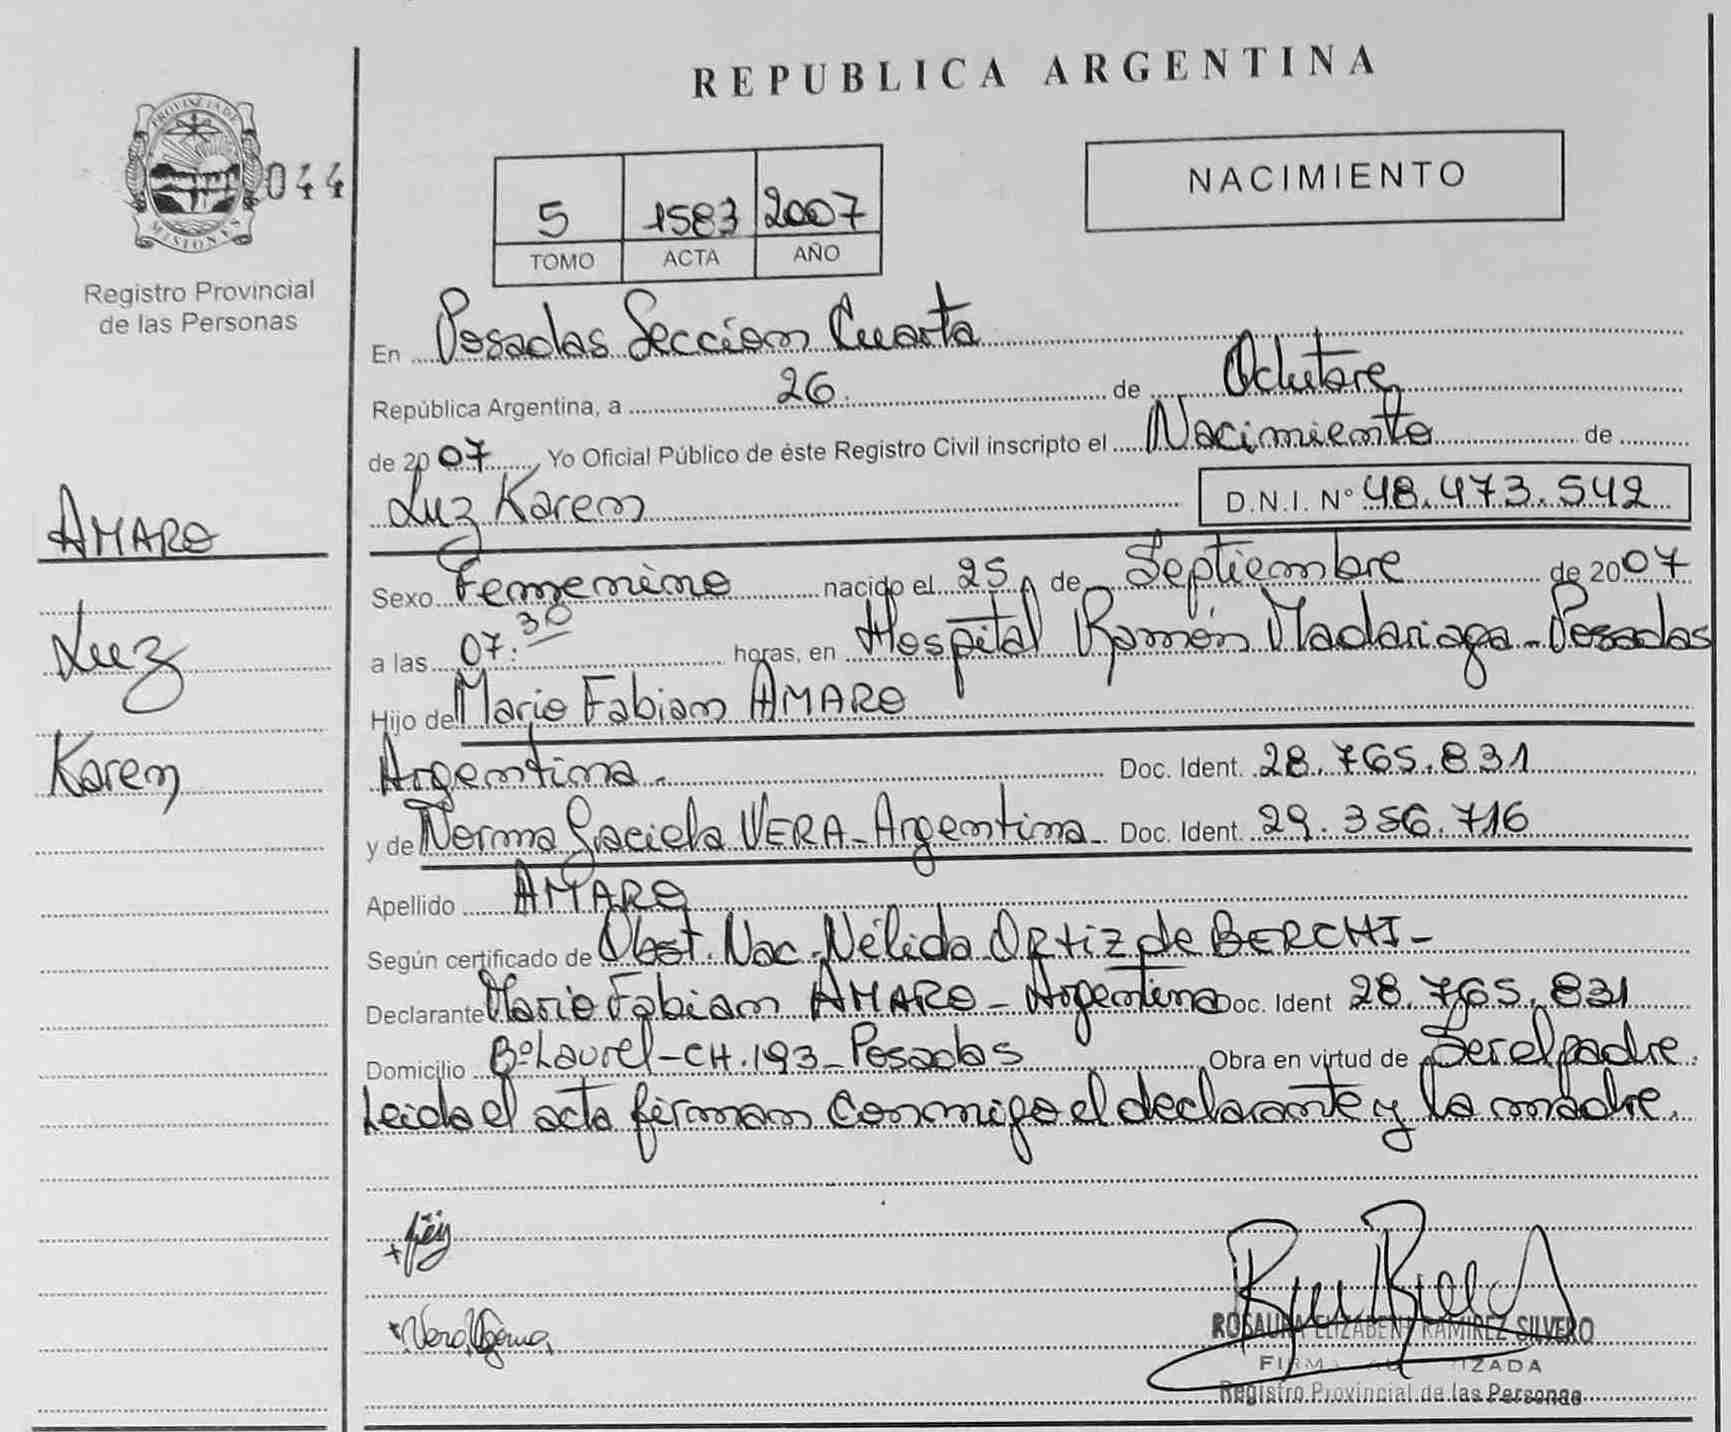 REPUBLICA ARGENTINA
PROVINCIA DE
MISIONES
044
Registro Provincial
de las Personas
NACIMIENTO
5 1583 2007
TOMO ACTA AÑO
En Posadas Sección Cuarta
República Argentina, a 26 de Octubre
de 2007, Yo Oficial Público de éste Registro Civil inscripto el Nacimiento de
Luz Karen D.N.I. N° 48.473.542
AMARO
Luz
Karen
Sexo Femenino nacido el 25 de Septiembre de 2007
a las 07:30 horas, en Hospital Ramón Madariaga - Posadas
Hijo de Mario Fabian AMARO
Argentina - Doc. Ident. 28.765.831
y de Norma Graciela VERA - Argentina - Doc. Ident. 29.356.716
Apellido AMARO
Según certificado de Obst. Nac. Nélida ORtiz de BERCHI -
Declarante Mario Fabian AMARO - Argentina Doc. Ident 28.765.831
Domicilio Bº Laurel - CH. 193 - Posadas Obra en virtud de Ser el padre.
Leida el acta firman conmigo el declarante y la madre.
Vera Norma
ROSAURA ELIZABENT RAMIREZ SILVERO
FIRMA AUTORIZADA
Registro Provincial de las Personas